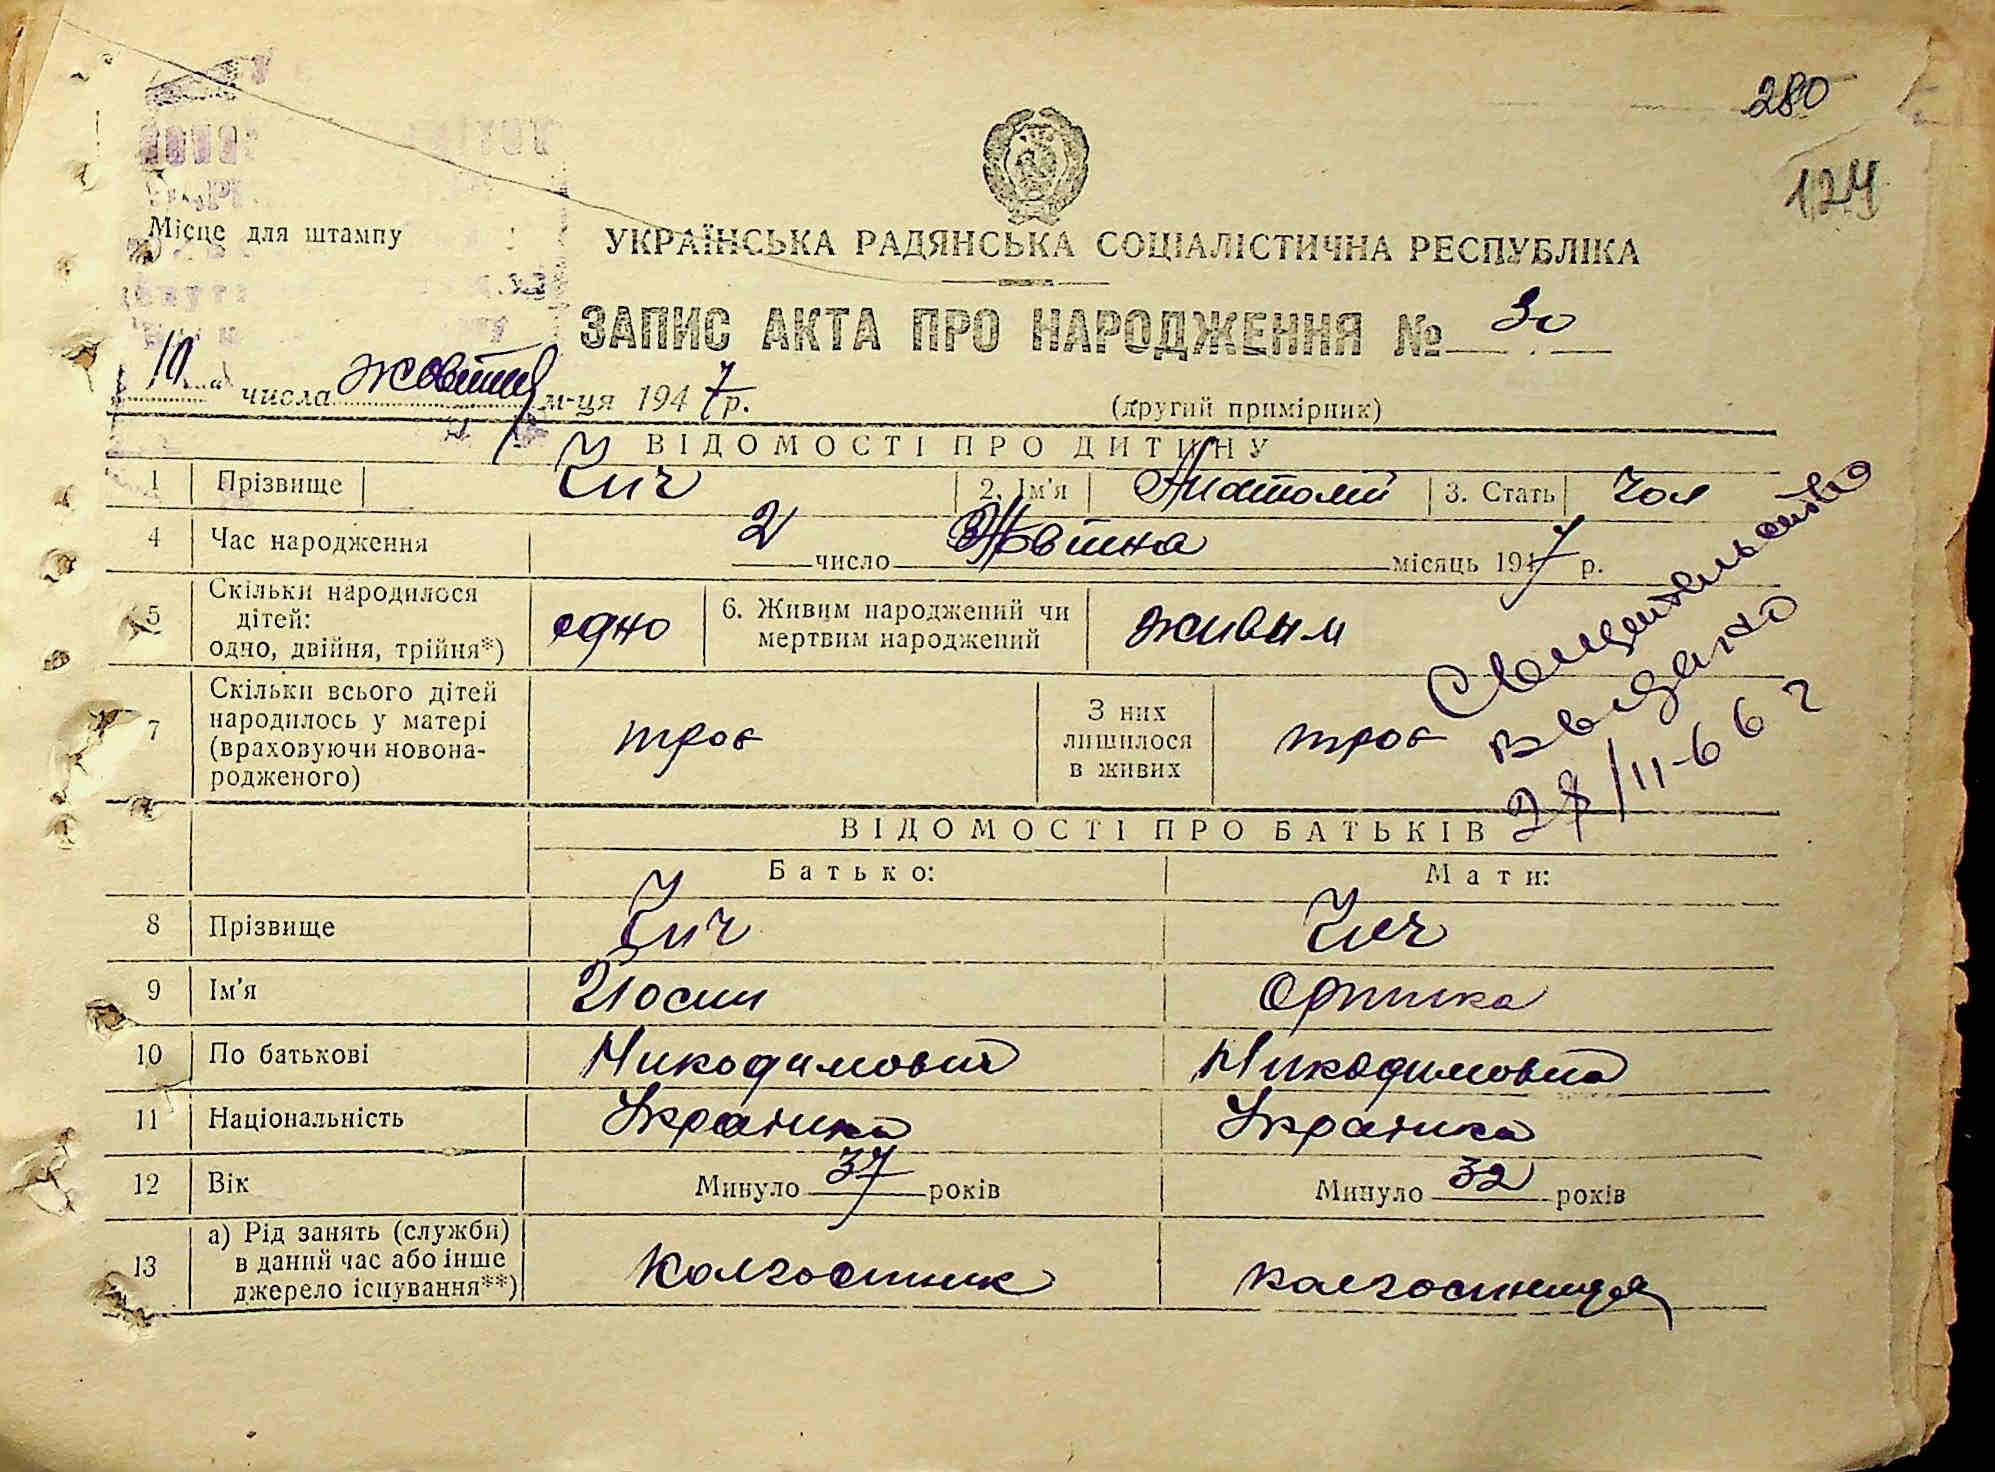 280
124
Місце для штампу
УКРАЇНСЬКА РАДЯНСЬКА СОЦІАЛІСТИЧНА РЕСПУБЛІКА
ЗАПИС АКТА ПРО НАРОДЖЕННЯ № 30
10 числа жовтня м-ця 1947 р. (другий примірник)
ВІДОМОСТІ ПРО ДИТИНУ
1 Прізвище Чич 2. Ім'я Анатолій 3. Стать чол
4 Час народження 2 число Жовтня місяць 1947 р.
5 Скільки народилося дітей: одно, двійня, трійня*) одно 6. Живим народжений чи мертвим народжений живым
7 Скільки всього дітей народилось у матері (враховуючи новонародженого) троє З них лишилося в живих троє
Свидетельство
выдано
28/11-66 г
ВІДОМОСТІ ПРО БАТЬКІВ
Батько: Мати:
8 Прізвище Чич Чич
9 Ім'я Йосип
10 По батькові Никодимович Никодимовна
11 Національність Українка
12 Вік Минуло 37 років Минуло 32 років
13 а) Рід занять (служби) в даний час або інше джерело існування**) Колгоспник колгоспниця